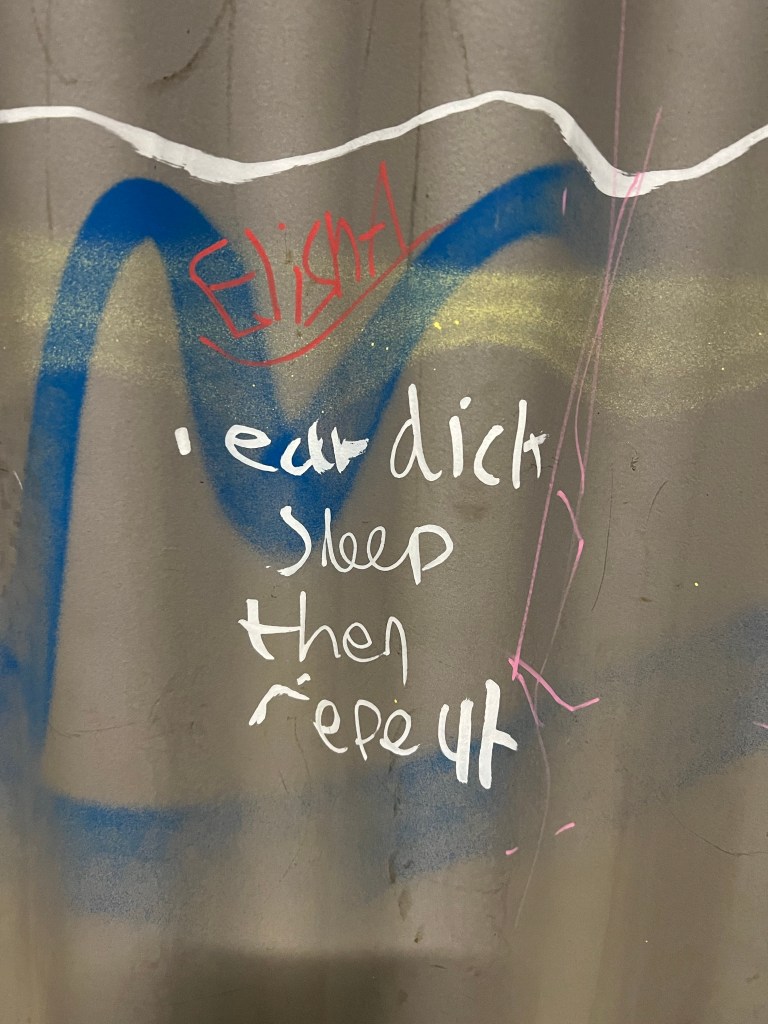 Elight
ear dick
sleep
then
repeat